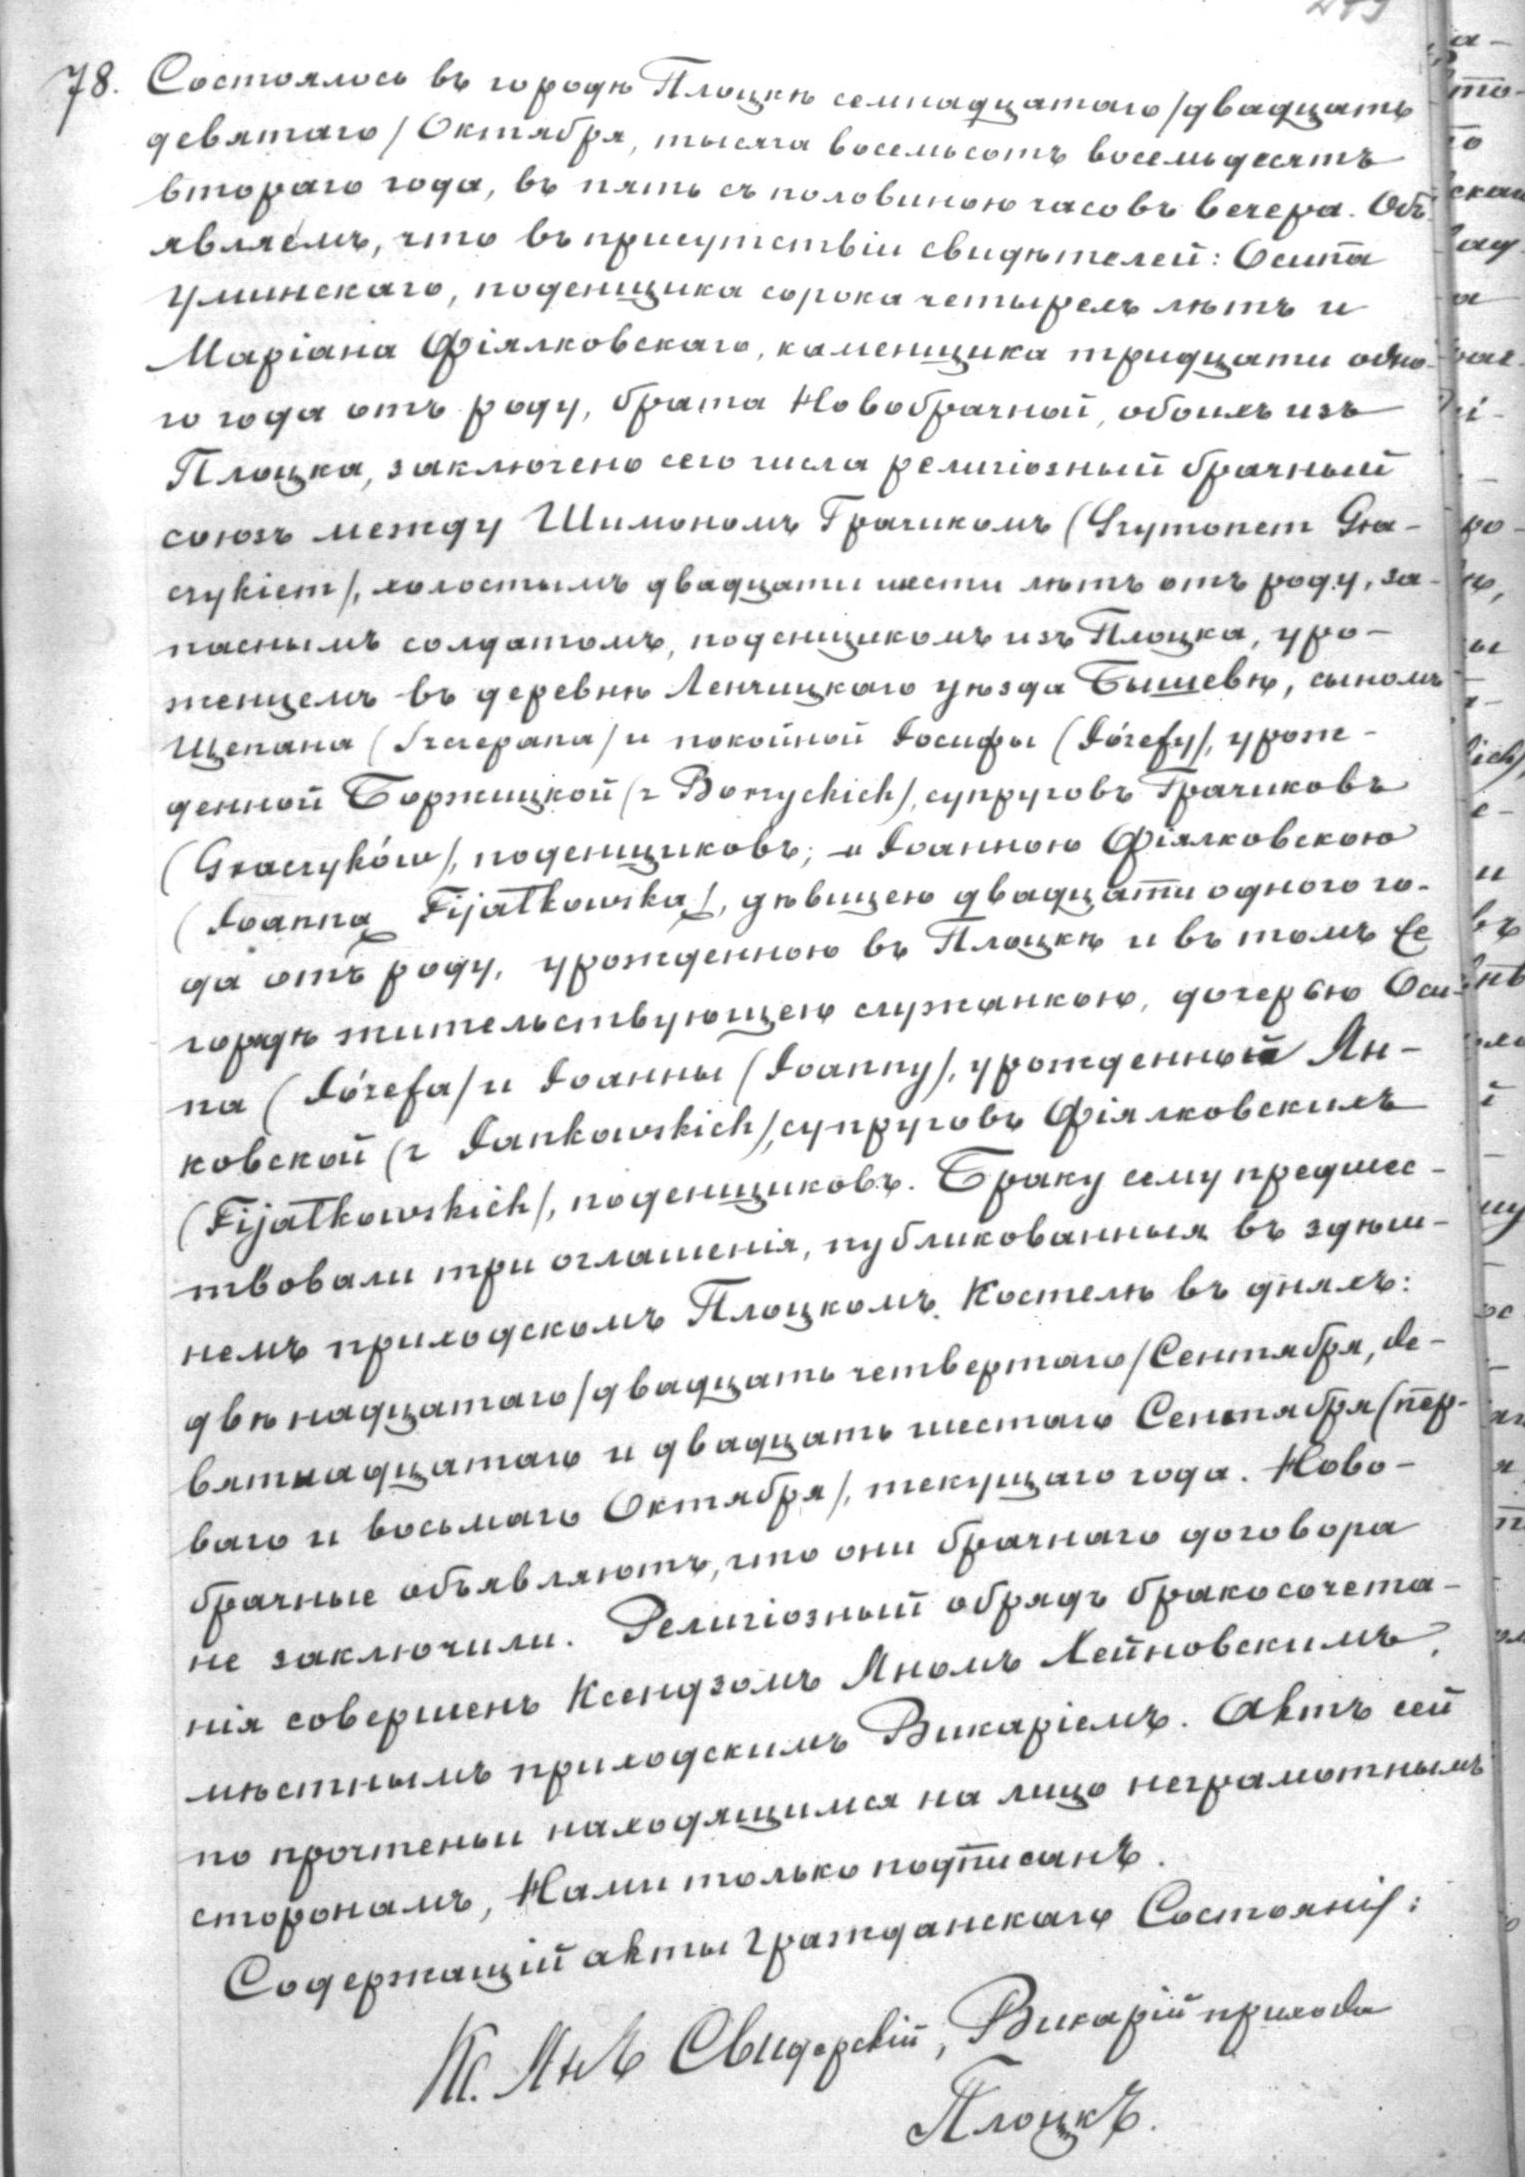 78. Состоялось въ городѣ Плоцкѣ семнадцатаго /двадцать
девятаго/ Октября, тысяча восемьсотъ восемьдесятъ
втораго года, въ пять съ половиною часовъ вечера. Объ-
являемъ, что въ присутствіи свидѣтелей: Осипа
Уминскаго, поденщика сорока четырехъ лѣтъ и
Маріана Фіялковскаго, каменщика тридцати одно-
го года отъ роду, брата Новобрачной, обоихъ изъ
Плоцка, заключено сего числа религіозный брачный
союзъ между Шимономъ Грачикомъ (Szymonem Gra-
czykiem/, холостымъ двадцати шести лѣтъ отъ роду, за-
паснымъ солдатомъ, поденщикомъ изъ Плоцка, уро-
женцемъ въ деревнѣ Ленчицкаго уѣзда Бышевѣ, сыномъ
Щепана (Szczepana/ и покойной Іосифы (Józefy/, урож-
денной Боржицкой (z Borzyckich/, супруговъ Грачиковъ
(Graczyków/, поденщиковъ; и Іоанною Фіялковскою
(Joanną Fijałkowską/, дѣвицею двадцати одного го-
да отъ роду, урожденною въ Плоцкѣ и въ томъ же
городѣ жительствующею служанкою, дочерью Оси-
па (Józefa/ и Іоанны (Joanny/, урожденной Ян-
ковской (z Jankowskich/, супруговъ Фіялковскихъ
(Fijałkowskich/, поденщиковъ. Браку сему предшес-
твовали три оглашенія, публикованныя въ здѣш-
немъ приходскомъ Плоцкомъ Костелѣ въ дняхъ:
двѣнадцатаго /двадцать четвертаго/ Сентября, де-
вятнадцатаго и двадцать шестаго Сентября (пер-
ваго и восьмаго Октября/, текущаго года. Ново-
брачные объявляютъ, что они брачнаго договора
не заключили. Религіозный обрядъ бракосочета-
нія совершенъ Ксендзомъ Яномъ Хейновскимъ,
мѣстнымъ приходскимъ Викаріемъ. Актъ сей
по прочтеньи находящимся на лицо неграмотнымъ
сторонамъ, Нами только подписанъ.
Содержащій акты Гражданскаго Состоянія:
Кс. Янъ Свидерскій, Викарій прихода
Плоцкъ.